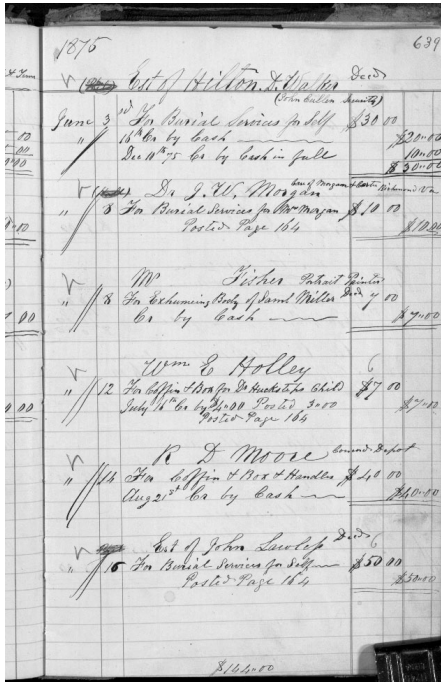 1875 639
Est of Hilton D. Walker Decd
(John Cullen Security)
June 3rd For Burial Services for Self $30 00
" 16th Cr by Cash $20=00
Dec 18th 75 Cr by Cash in full 10=00
$30=00
Dr J. W. Morgan Care of Morgan & Richmond Va
" 8 For Burial Services for Mrs Morgan $10 00
Posted Page 164 $10.00
Mr Fisher Portrait Painter
" 8 For Exhumeing Body of Saml Miller Decd 7 00
Cr by Cash $7=00
Wm E Holley 6
" 12 For Coffin & Box for Dr Huckstep's Child $7 00
July 16th Cr by $4=00 Posted 3=00 $7=00
Posted Page 164
R D Moore Depot
" 14 For Coffin & Box & Handles $40 00
Aug 21st Cr by Cash $40=00
Est of John Lawless Decd 6
" 15 For Burial Services for Self $50 00
Posted Page 164 $50=00
$144=00